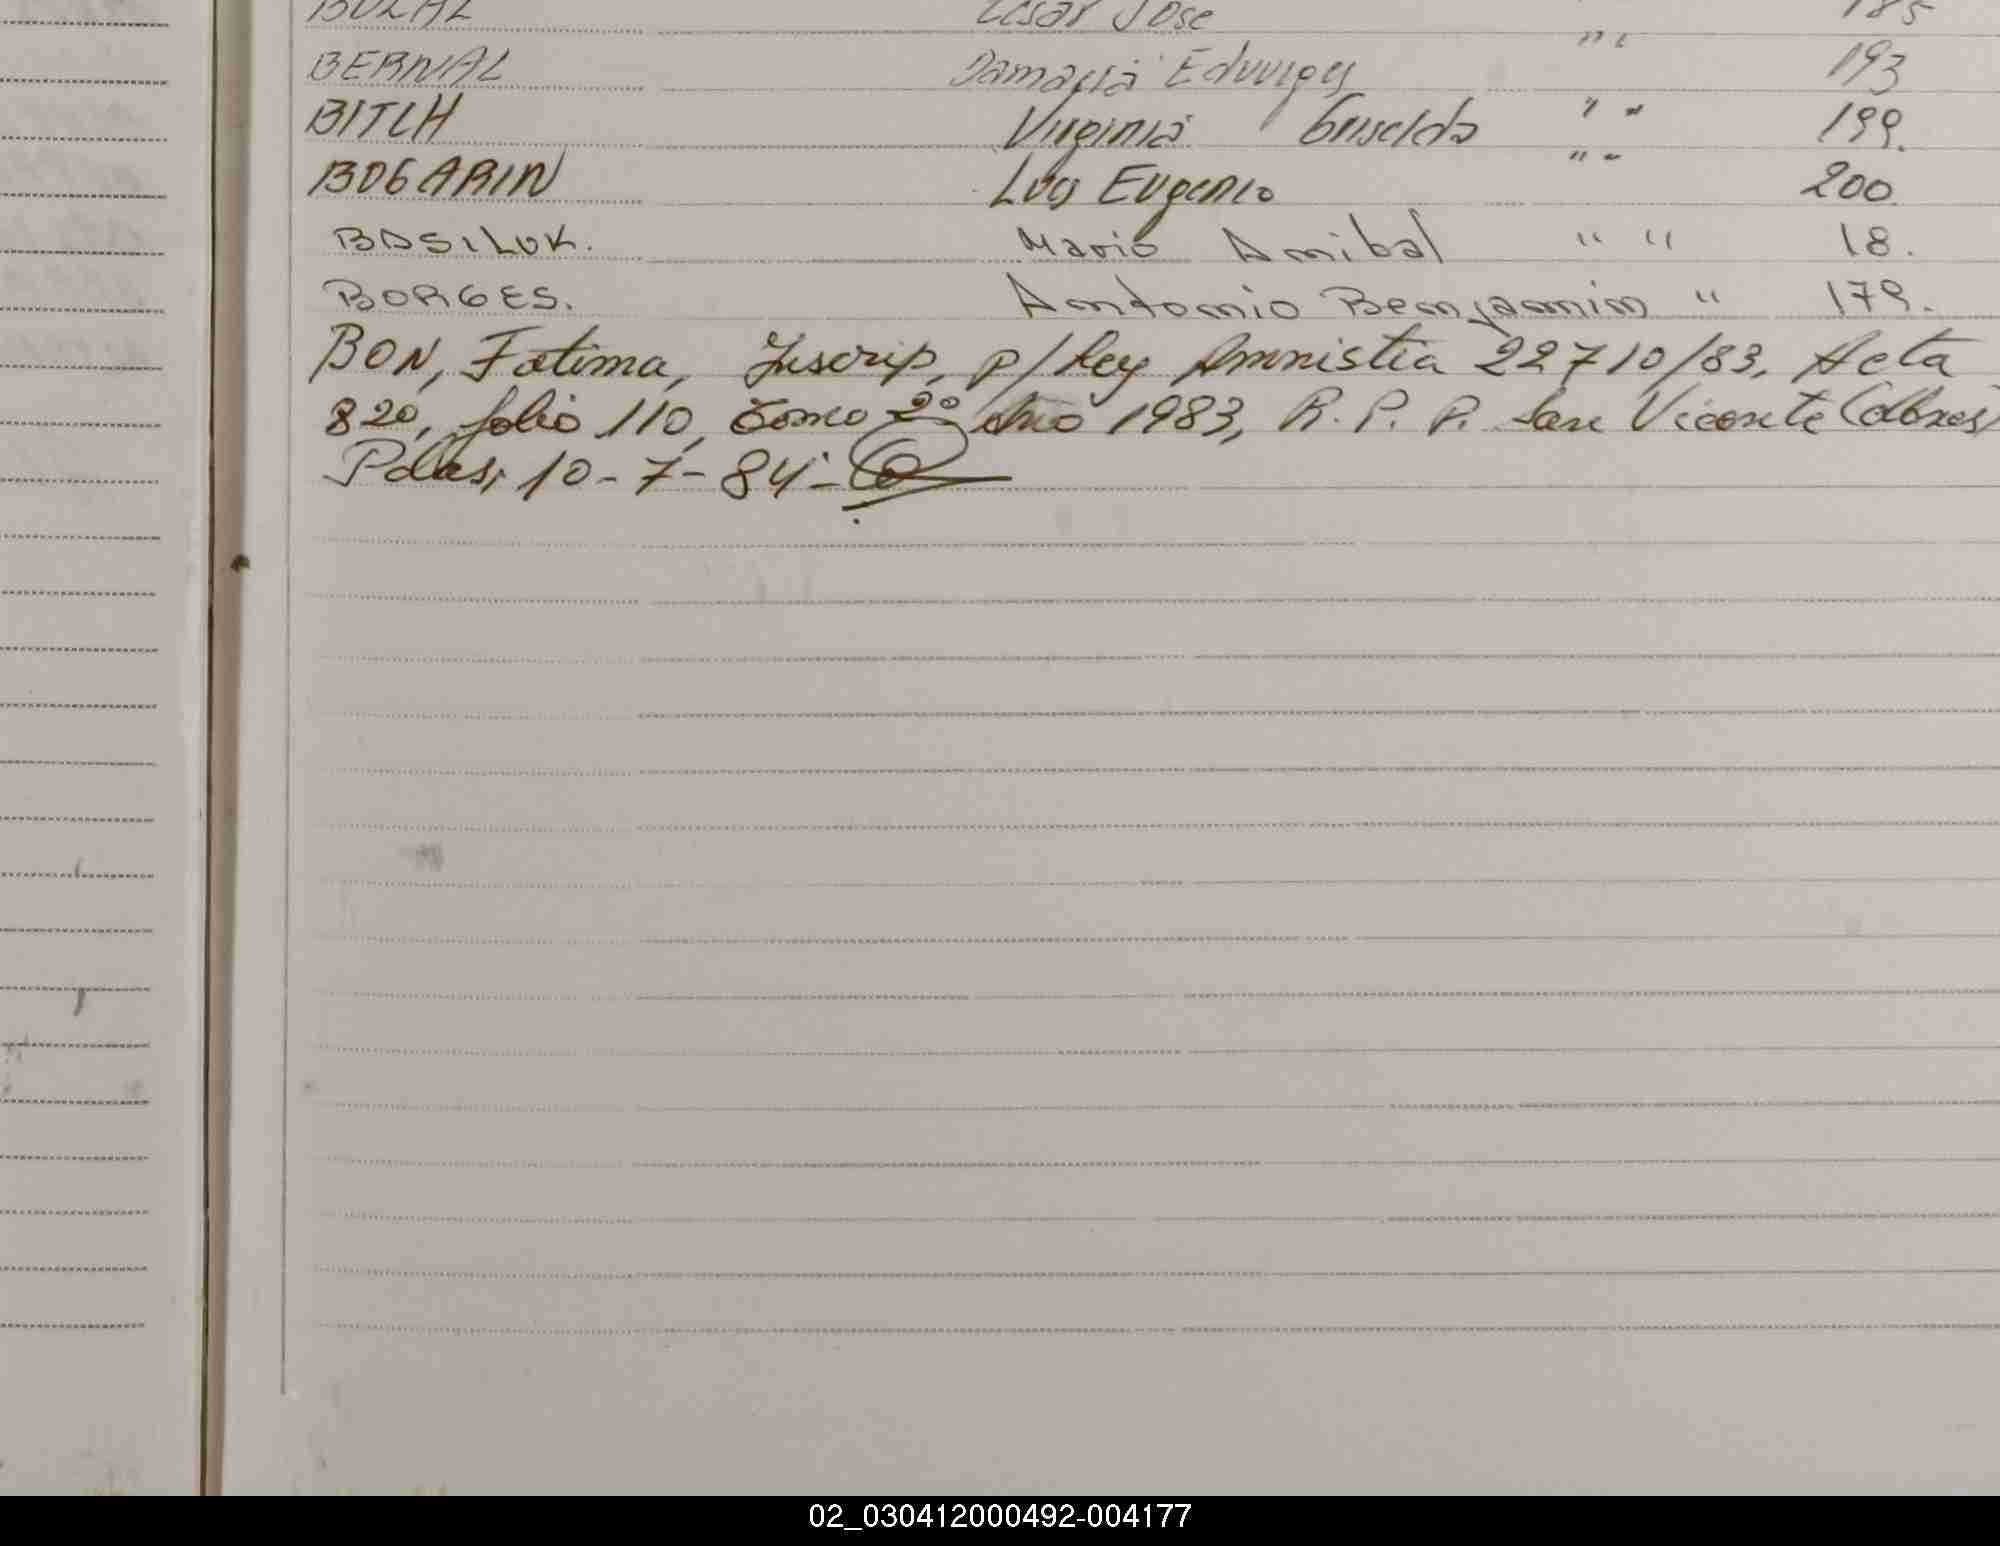 César José 185
BERNAL Damacia Eduviges " " 193
BITCH Virginia Griselda " " 199.
BOGARIN Luis Eugenio " " 200
BASILUK. Mario Anibal " " 18.
BORGES. Antonio Benjamin " 179.
BON, Fatima, Inscrip, p/Ley Amnistia 22710/83, Acta
820, folio 110, Tomo 2º Año 1983, R. P. P. San Vicente
Pdas, 10-7-84-
02_030412000492-004177